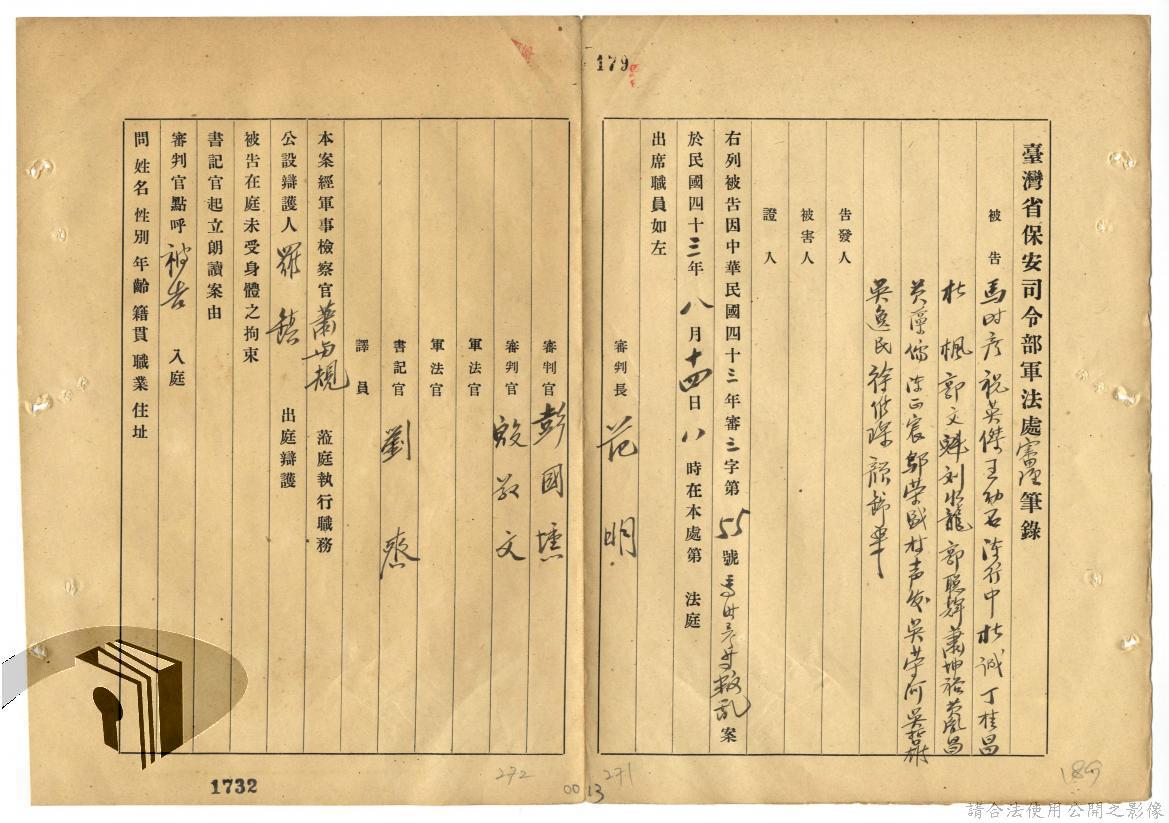 179
臺灣省保安司令部軍法處審理筆錄
被告 馬时彥 祝英傑 王幼石 陈行中 杜诚 丁桂昌
杜楓 郭文魁 刘水龍 郭聰輝 萧坤裕 黄鳳昌
陈正宸 鄔荣盛 林声发
吳逸民
告發人
被害人
證人
右列被告因中華民國四十三年審三字第55號馬时彥等叛乱案
於民國四十三年八月十四日八時在本處第 法庭
出席職員如左
審判長 范明
審判官 彭國壎
審判官 殷敬文
軍法官
軍法官
書記官 劉
譯員
本案經軍事檢察官萧与規 蒞庭執行職務
公設辯護人 羅鎮 出庭辯護
被告在庭未受身體之拘束
書記官起立朗讀案由
審判官點呼 被告 入庭
問姓名性別年齡籍貫職業住址
1732
272
00 13
271
請合法使用公開之影像